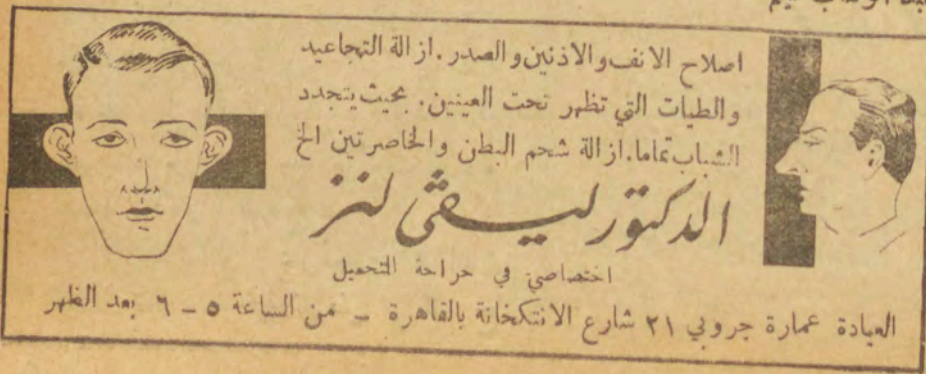 اصلاح الانف والاذنين والصدر. ازالة التجاعيد
والطيات التي تظهر تحت العينين. بحيث يتجدد
الشباب تماما. ازالة شحم البطن والخاصرتين الخ
الدكتور ليڤى لنز
اختصاصي في جراحة التجميل
العيادة عمارة جروبي ٢١ شارع الانتكخانة بالقاهرة – من الساعة ٥ – ٦ بعد الظهر